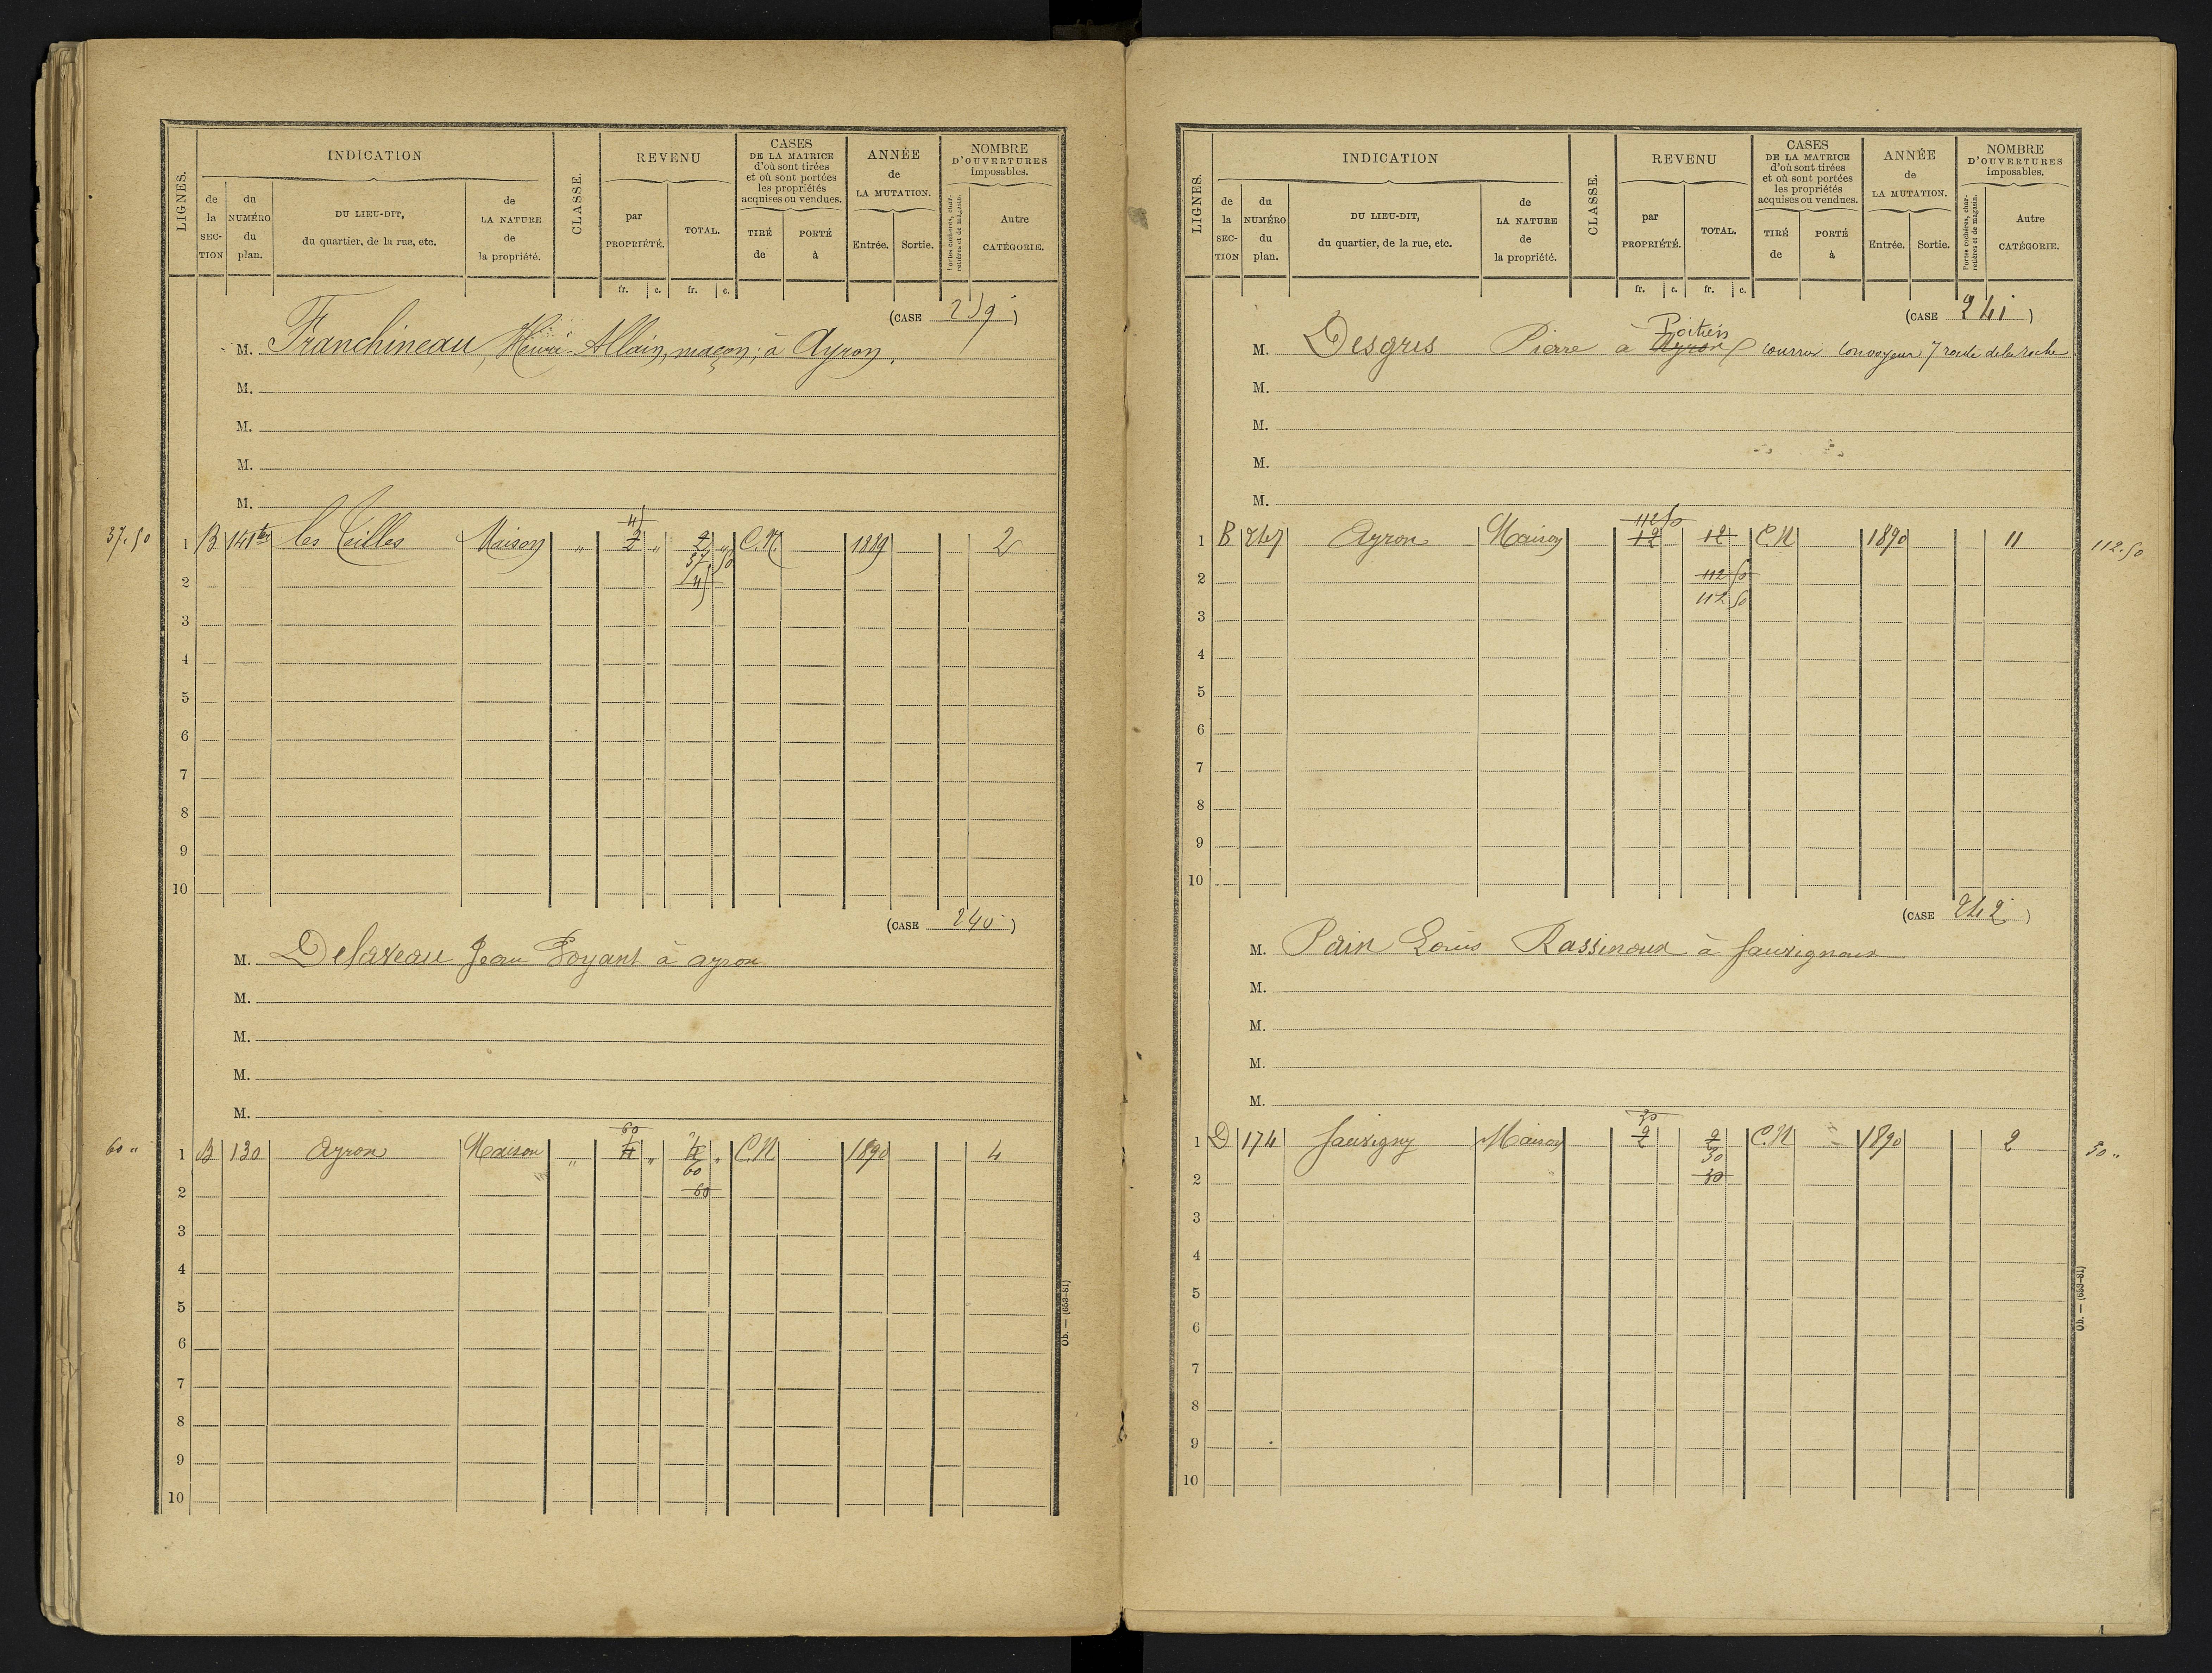 LIGNES.
INDICATION
de la SECTION
du NUMÉRO du plan.
DU LIEU-DIT, du quartier, de la rue, etc.
de LA NATURE de la propriété.
CLASSE.
REVENU
par PROPRIÉTÉ.
TOTAL.
CASES DE LA MATRICE d'où sont tirées et où sont portées les propriétés acquises ou vendues.
TIRÉ de
PORTÉ à
ANNÉE de LA MUTATION.
Entrée.
Sortie.
NOMBRE D'OUVERTURES imposables.
Portes cochères, charretières et de magasin.
Autre CATÉGORIE.
fr. c. fr. c.
(CASE 239)
M. Franchineau, Henri-Allain, maçon, à Ayron.
M.
M.
M.
M.
37.50 1 B 141 ter les Teilles Maison " 2 " 2 " C.N. 1889 2
37 50
2
3
4
5
6
7
8
9
10
(CASE 240)
M. Delaveau Jean Foyant à ayron
M.
M.
M.
M.
60
60 " 1 B 130 Ayron Maison " 4 " 4 " C.N 1890 4
60
2 60
3
4
5
6
7
8
9
10
Ob. — (653-81)
LIGNES.
INDICATION
de la SECTION
du NUMÉRO du plan.
DU LIEU-DIT, du quartier, de la rue, etc.
de LA NATURE de la propriété.
CLASSE.
REVENU
par PROPRIÉTÉ.
TOTAL.
CASES DE LA MATRICE d'où sont tirées et où sont portées les propriétés acquises ou vendues.
TIRÉ de
PORTÉ à
ANNÉE de LA MUTATION.
Entrée.
Sortie.
NOMBRE D'OUVERTURES imposables.
Portes cochères, charretières et de magasin.
Autre CATÉGORIE.
fr. c. fr. c.
(CASE 241)
Poitiers
M. Desgris Pierre à Ayron courrier convoyeur 7 route de la roche
M.
M.
M.
M.
112 50
1 B 247 Ayron Maison 12 12 C.N 1890 11 112.50
2 112 50
112 50
3
4
5
6
7
8
9
10
(CASE 242)
M. Pain Louis Rassinoux à Jauvignoux
M.
M.
M.
M.
30
1 D 174 Jauvigny Maison 2 2 C.N 1890 2 30 "
30
2 30
3
4
5
6
7
8
9
10
Ob. — (653-81)